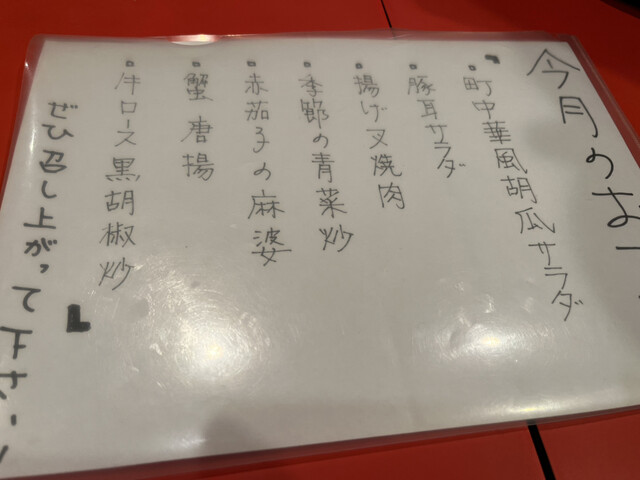 今月のお
町中華風胡瓜サラダ
豚耳サラダ
揚げ叉焼肉
季節の青菜炒
赤茄子の麻婆
蟹唐揚
牛ロース黒胡椒炒
ぜひ召し上がって下さい